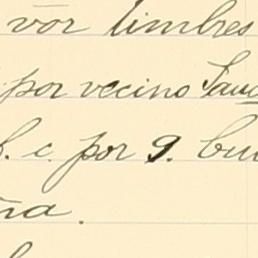 vor timbres
por vecino
f. c. por 9.
ña.